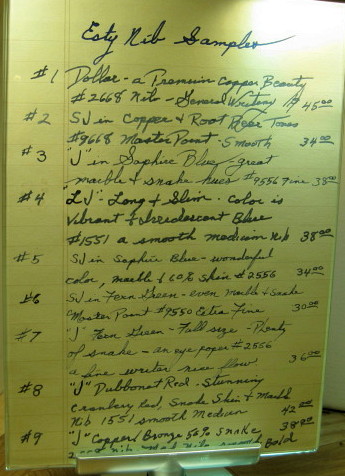 Esty Nib Sampler
#1 Dollar - a Premium Copper Beauty
#2668 Nib - General Writing 45.00
#2 SJ in Copper & Root Beer Tones
#9668 Master Point - Smooth 34.00
#3 "J" in Saphire Blue - great
marble & snake hues #9556 Fine 38.00
#4 "LJ" - Long & Slim - Color is
Vibrant & Irredescent Blue
#1551 a smooth medium nib 38.00
#5 SJ in Saphire Blue - wonderful
color, marble & 60% Shein #2556 34.00
#6 SJ in Fern Green - even Marble & Snake
"Master Point #9550 Extra Fine 30.00
#7 "J" Fern Green - Full size - Plenty
of snake - an eye poper #2556
a fine writer nice flow. 36.00
#8 "J" Dubbonet Red - Stunning
Cranberry Red, Snake Skin & Marble
Nib 1551 smooth Medium 42.00
#9 "J" Copper/Bronze 50% snake 38.00
smooth Bold